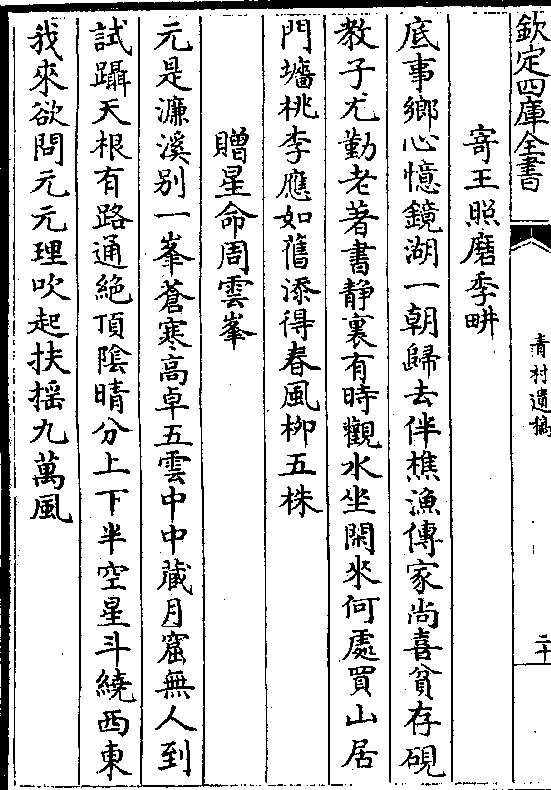 欽定四庫全書
青村遺稿
二十
寄王照磨季畊
底事鄉心憶鏡湖一朝歸去伴樵漁傳家尚喜貧存硯
教子尤勤老著書静裏有時觀水坐閑來何處買山居
門墻桃李應如舊添得春風栁五株
贈星命周雲峯
元是濂溪別一峯蒼寒高卓五雲中中藏月窟無人到
試躡天根有路通絶頂陰晴分上下半空星斗繞西東
我來欲問元元理吹起扶摇九萬風